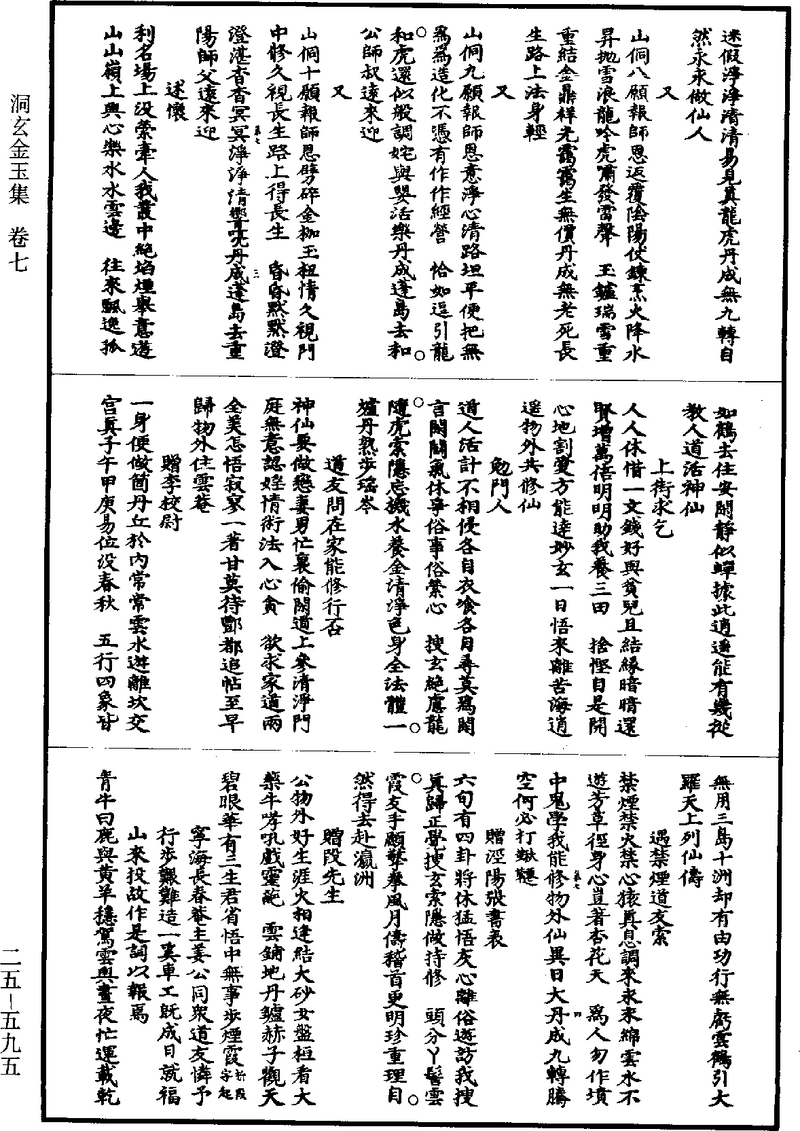 洞玄金玉集　卷七
迷假淨淨清清易見真龍虎丹成無九轉自
然永永做仙人
又
山侗八願報師恩返覆陰陽仗鍊烹火降水
昇拋雪浪龍吟虎嘯發雷聲　玉鑪瑞雪重
重結金鼎祥光靄靄生無價丹成無老死長
生路上法身輕
又
山侗九願報師恩意淨心清路坦平便把無
為為造化不憑有作作經營　恰如逗引龍
和虎還似般調姹與嬰活樂丹成蓬島去和
公師叔遠來迎
又
山侗十願報師恩劈碎金枷玉杻情久視門
中修久視長生路上得長生　昏昏默默澄
澄湛杳杳冥冥淨淨清響喨丹成蓬島去重
陽師父遠來迎
述懷
利名場上沒縈牽人我叢中絕焰煙舉意遊
山山嶺上興心樂水水雲邊　往來飄逸孤
如鶴去住安閑靜似蟬據此逍遥能有幾從
教人道活神仙
上街求乞
人人休惜一文錢好與貧兒且結緣暗暗還
賢增萬倍明明助我養三田　捨慳自是開
心地割愛方能達妙玄一日悟來離苦海逍
遥物外共修仙
勉門人
道人活計不相侵各自衣飡各自尋莫為閑
言閑鬬氣休爭俗事俗縈心　搜玄絕慮龍
隨虎索隱忘機水養金清淨色身全法體一
爐丹熟步瑤岑
道友問在家能修行否
神仙要做戀妻男忙裏偷閑道上參清淨門
庭無意認婬情術法入心貪　欲求家道兩
全美怎悟寂寥一著甘莫待酆都追帖至早
歸物外住雲菴
贈李校尉
一身便做箇丹丘於內常常雲水遊離坎交
宮真子午甲庚易位没春秋　五行四象皆
無用三島十洲却有由功行無虧雲鶴引大
羅天上列仙儔
遇禁煙道友索
禁煙禁火禁心猿真息調來永永綿雲水不
遊芳草徑身心豈著杏花天　為人勿作墳
中鬼學我能修物外仙異日大丹成九轉騰
空何必打鞦韆
贈涇陽張書表
六旬有四卦將休猛悟灰心離俗遊訪我搜
真歸正覺搜玄索隱做持修　頭分丫髻雲
霞友手願藜拳風月儔稽首更明珍重理自
然得去赴瀛洲
贈段先生
公物外好生涯火相逢結大砂女盤桓看大
藥牛哮吼戲靈葩　雲鋪地丹鑪赫子觀天
碧眼華有三生君省悟中無事步煙霞折段字起
寧海長春菴主姜公同衆道友憐予
行步艱難造一奚車工既成日就福
山來投故作是詞以報焉
青牛白鹿與黃羊穩駕雲輿晝夜忙運載乾
二五－五九五